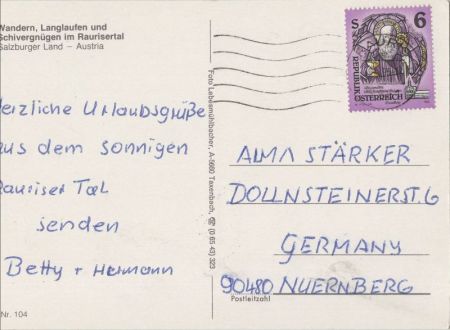 Wandern, Langlaufen und
Schivergnügen im Raurisertal
Salzburger Land – Austria
Herzliche Urlaubsgrüße
aus dem sonnigen
Rauriser Tal
senden
Betty + Hermann
Nr. 104
Foto Lebesmühlbacher, A-5660 Taxenbach, ☎ (0 65 43) 323
S 6
REPUBLIK
ÖSTERREICH
ALMA STÄRKER
DOLLNSTEINERST. 6
GERMANY
90480 NUERNBERG
Postleitzahl